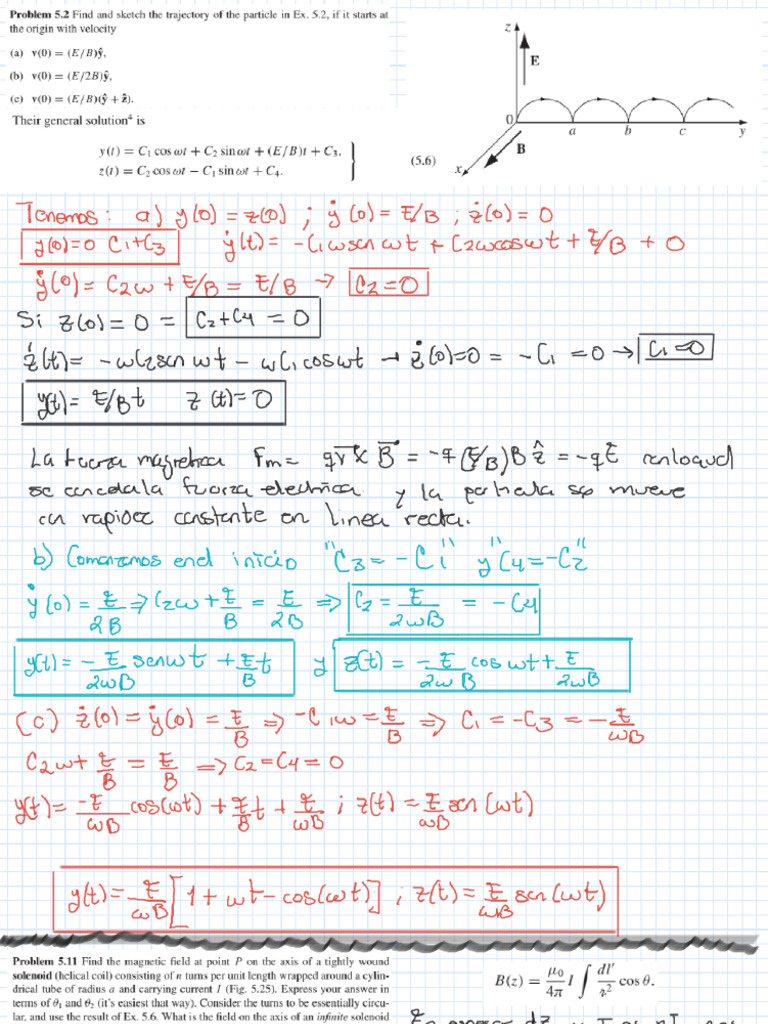 Problem 5.2 Find and sketch the trajectory of the particle in Ex. 5.2, if it starts at
the origin with velocity
(a) v(0) = (E/B)ŷ,
(b) v(0) = (E/2B)ŷ,
(c) v(0) = (E/B)(ŷ + ẑ).
z
E
0
a b c y
B
x
Their general solution⁴ is
y(t) = C₁ cos ωt + C₂ sin ωt + (E/B)t + C₃,
z(t) = C₂ cos ωt − C₁ sin ωt + C₄.
(5.6)
Tenemos: a) y(0) = z(0) ; ẏ(0) = E/B ; ż(0) = 0
y(0)=0 C₁+C₃ ẏ(t) = -C₁ωsen ωt + C₂ωcosωt + E/B + 0
ẏ(0) = C₂ω + E/B = E/B → C₂=0
Si z(0) = 0 = C₂+C₄ = 0
ż(t) = -ωC₂sen ωt - ωC₁cosωt → ż(0)=0 = -C₁ = 0 → C₁=0
y(t) = E/B t z (t) = 0
La fuerza magnetica Fm = qv⃗ × B⃗ = -q (E/B) B ẑ = -qE con lo cual
se cancela la fuerza electrica y la particula se mueve
con rapidez constante en linea recta.
b) Comenzamos en el inicio "C₃ = -C₁" y "C₄ = -C₂"
ẏ(0) = E/2B ⇒ C₂ω + E/B = E/2B ⇒ C₂ = E/2ωB = -C₄
y(t) = - E/2ωB senωt + E/B t y z(t) = - E/2ωB cosωt + E/2ωB
(c) ż(0) = ẏ(0) = E/B ⇒ -C₁ω = E/B ⇒ C₁ = -C₃ = - E/ωB
C₂ω + E/B = E/B ⇒ C₂ = C₄ = 0
y(t) = -E/ωB cos(ωt) + E/B t + E/ωB ; z(t) = E/ωB sen(ωt)
y(t) = E/ωB [1 + ωt - cos(ωt)] ; z(t) = E/ωB sen(ωt)
Problem 5.11 Find the magnetic field at point P on the axis of a tightly wound
solenoid (helical coil) consisting of n turns per unit length wrapped around a cylin-
drical tube of radius a and carrying current I (Fig. 5.25). Express your answer in
terms of θ₁ and θ₂ (it's easiest that way). Consider the turns to be essentially circu-
lar, and use the result of Ex. 5.6. What is the field on the axis of an infinite solenoid
B(z) = μ₀/4π I ∫ dl′/𝓇² cos θ.